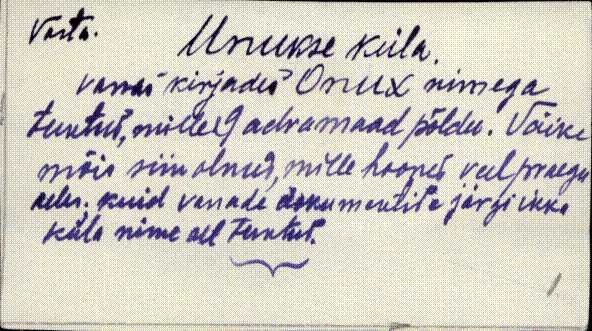 Vasta.
Unukse küla.
vanas kirjades Onux nimega
tuntud, millel 9 adramaad põldu. Väike
mõis siin olnud, mille hooned veel praegu
alles. kuid vanade dokumentide järgi ikka
küla nime all tuntud.